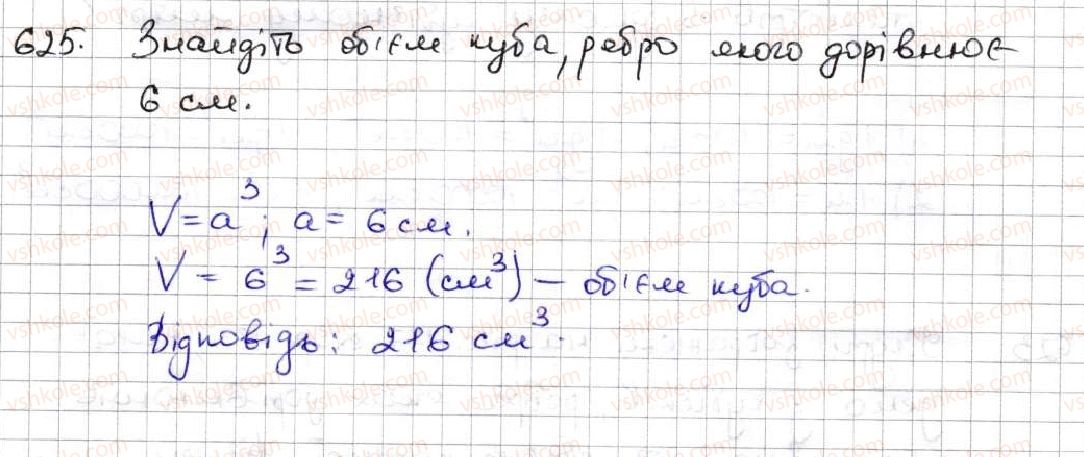 625. Знайдіть об'єм куба, ребро якого дорівнює
6 см.
V = a³; a = 6 см.
V = 6³ = 216 (см³) – об'єм куба.
Відповідь: 216 см³.